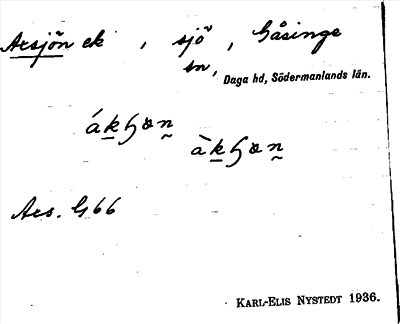 Arsjön ek , sjö , Gåsinge
sn, Daga hd, Södermanlands län.
Ars. G66
KARL-ELIS NYSTEDT 1936.